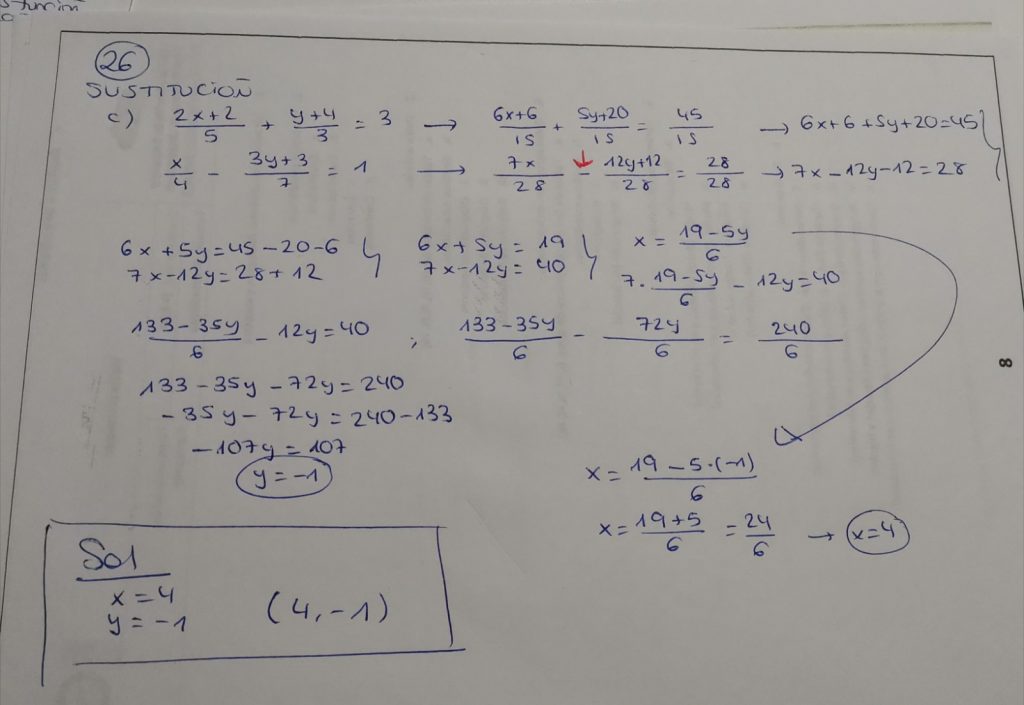 26
SUSTITUCIOÑ
c) (2x+2)/5 + (y+4)/3 = 3 → (6x+6)/15 + (5y+20)/15 = 45/15 → 6x+6+5y+20=45
x/4 - (3y+3)/7 = 1 → 7x/28 - (12y+12)/28 = 28/28 → 7x-12y-12=28
6x+5y=45-20-6
7x-12y=28+12
6x+5y=19
7x-12y=40
x = (19-5y)/6
7·(19-5y)/6 - 12y=40
(133-35y)/6 - 12y=40 ; (133-35y)/6 - 72y/6 = 240/6
133-35y-72y=240
-35y-72y=240-133
-107y=107
y=-1
x = (19-5·(-1))/6
x = (19+5)/6 = 24/6 → x=4
Sol
x=4
y=-1
(4,-1)
8